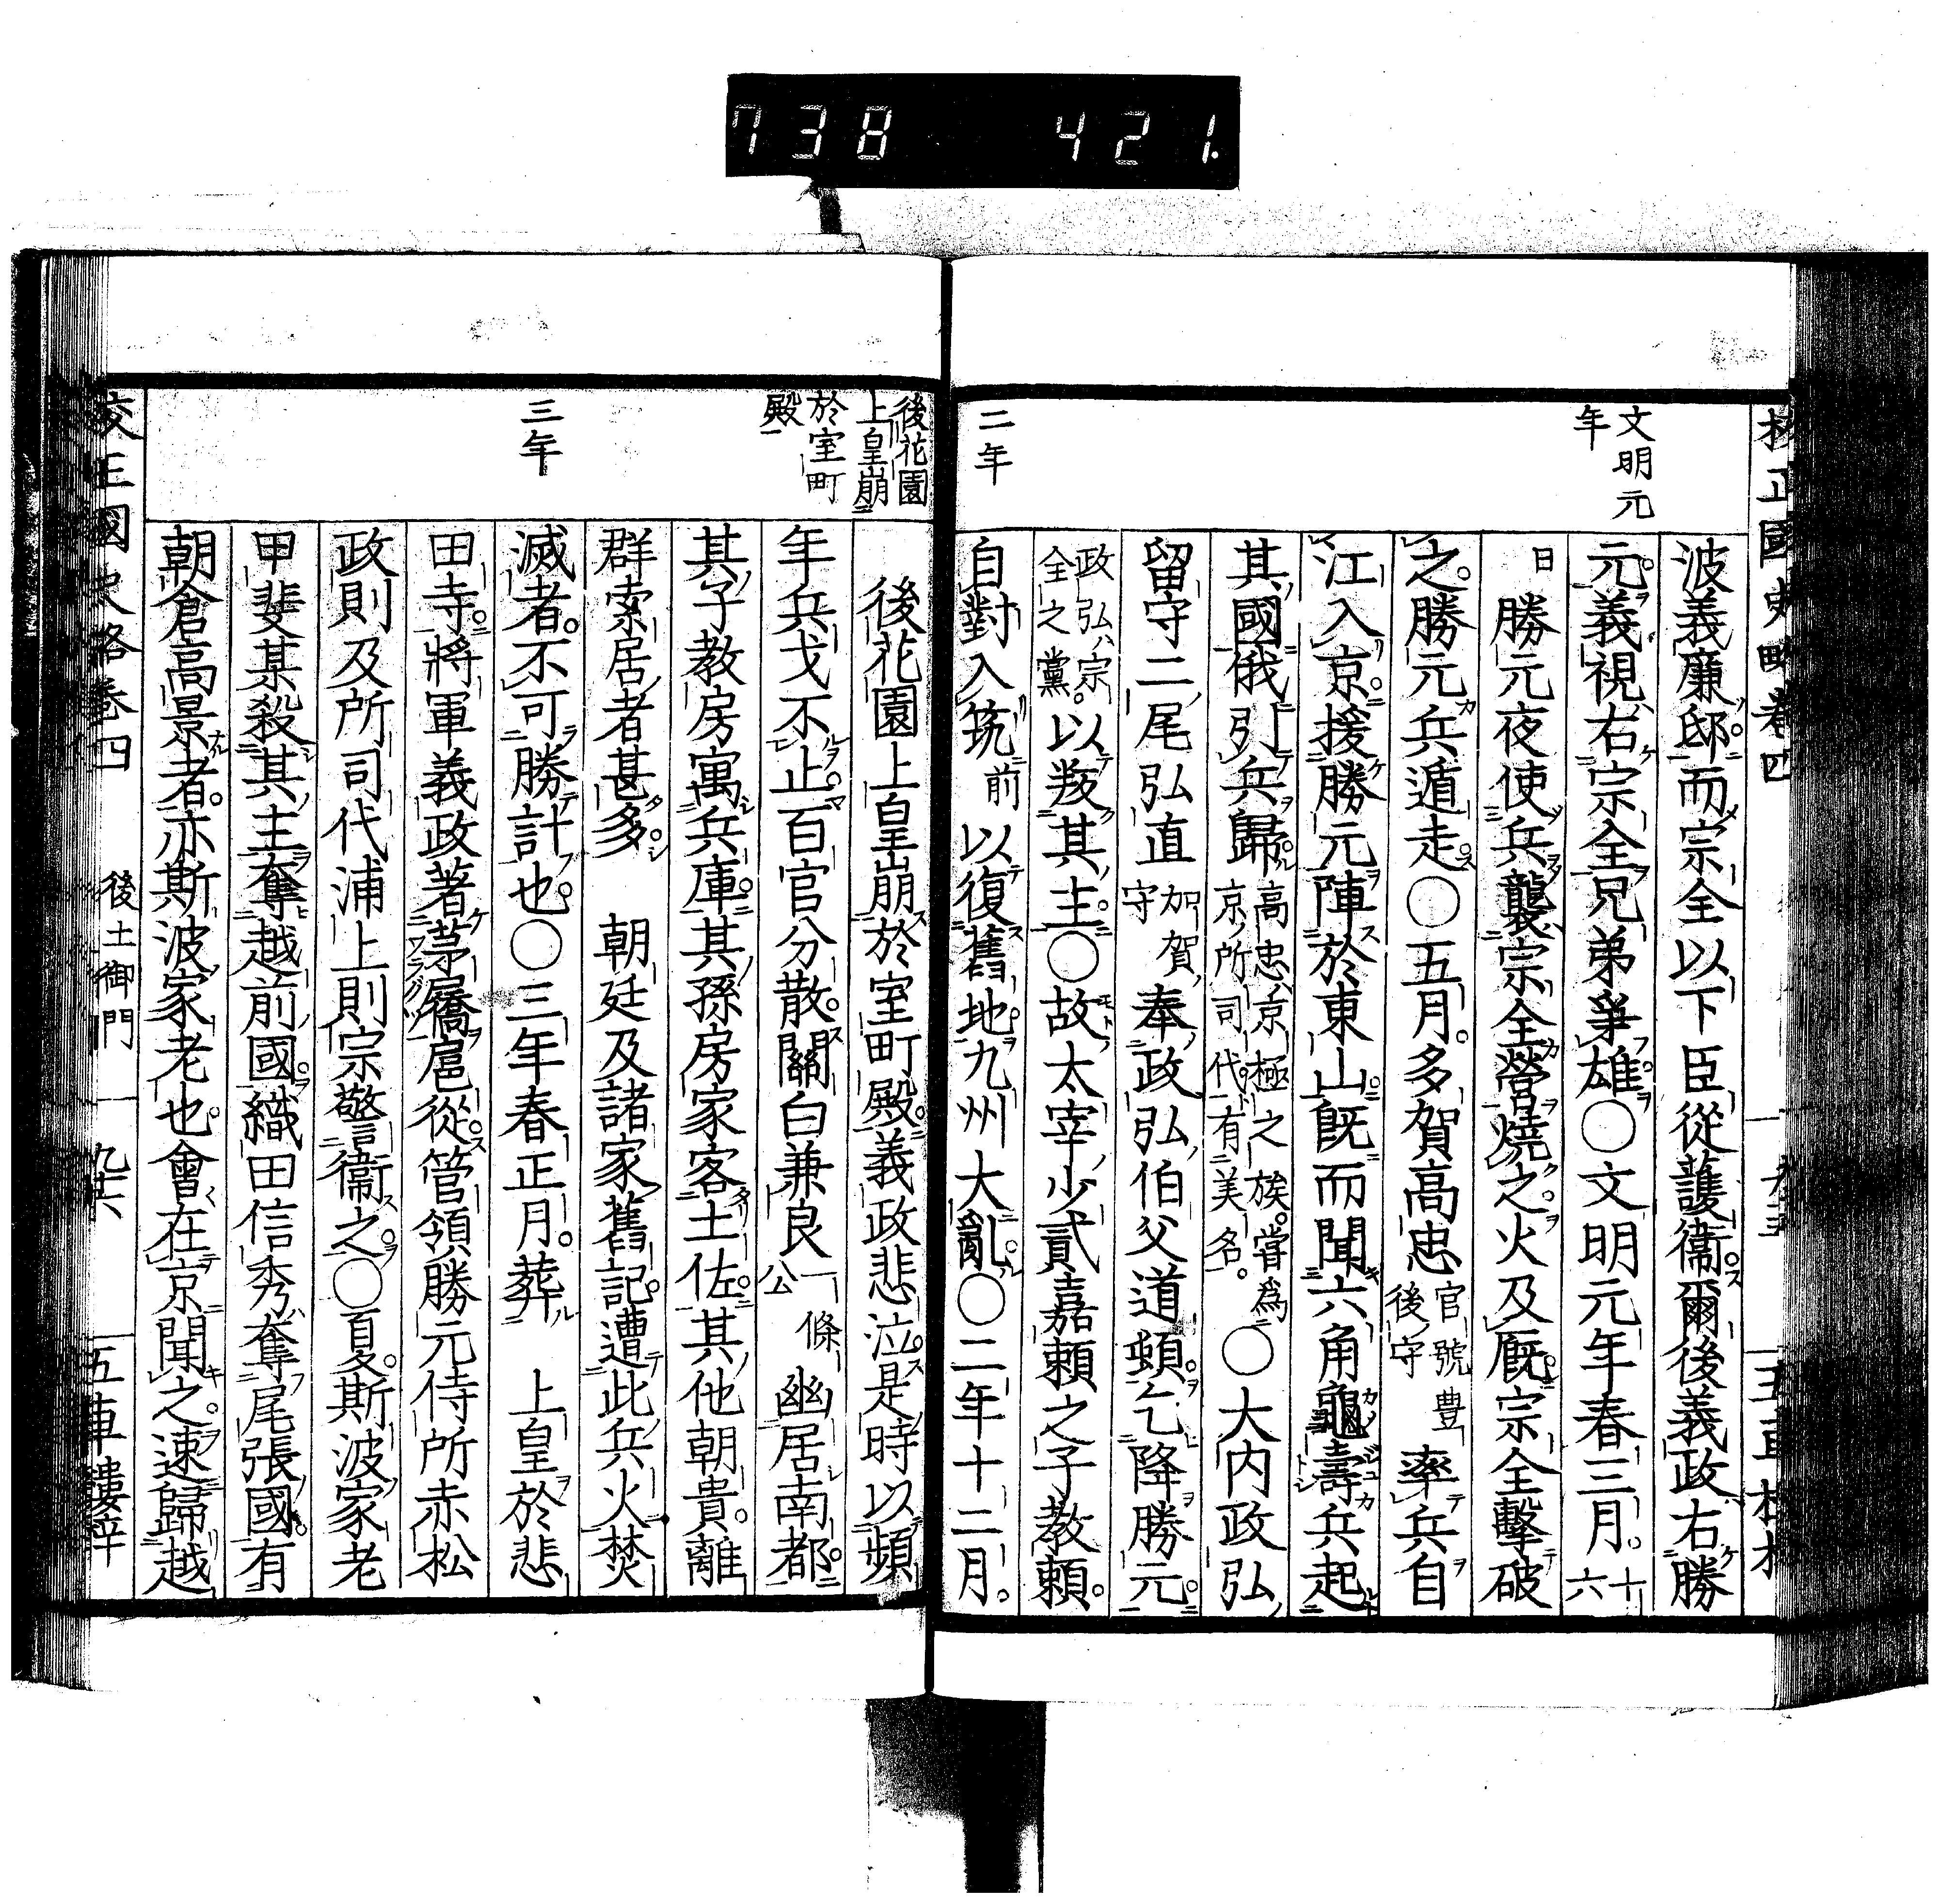 738 421.
校正國史略卷四
文明元
年
二年
波義廉邸而宗全以下臣從護衞爾後義政右勝
元義視右宗全兄弟爭雄〇文明元年春三月十六
日勝元夜使兵襲宗全營燒之火及厩宗全擊破
之勝元兵遁走〇五月多賀高忠官號豊後守率兵自
江入京援勝元陣於東山既而聞六角龜壽兵起
其國俄引兵歸高忠ハ京極之族嘗爲京所司代有美名〇大内政弘
留守二尾弘直加賀守奉政弘伯父道頓乞降勝元
政弘ハ宗全之黨以叛其主〇故太宰少貳嘉頼之子教頼
自對入筑前以復舊地九州大亂〇二年十二月
後花園
上皇崩
於室町
殿
三年
後花園上皇崩於室町殿義政悲泣是時以頻
年兵戈不止百官分散關白兼良一條公幽居南都
其子教房寓兵庫其孫房家客土佐其他朝貴離
群索居者甚多 朝廷及諸家舊記遭此兵火焚
滅者不可勝計也〇三年春正月葬 上皇於悲
田寺將軍義政著茅屩扈從管領勝元侍所赤松
政則及所司代浦上則宗警衞之〇夏斯波家老
甲斐某殺其主奪越前國織田信秀奪尾張國有
朝倉高景者亦斯波家老也會在京聞之速歸越
校正國史略卷四 後土御門 九六 五車樓梓